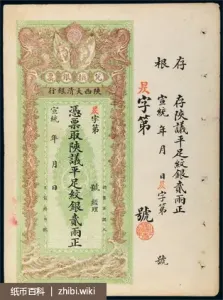 存根
存陝議平足紋銀貳兩正
宣統 年 月 日 字第 號
字第 號
陝西大清銀行
字第 號 經理
憑票取陝議平足紋銀貳兩正
宣統 年 月 日
纸币百科 | zhibi.wiki